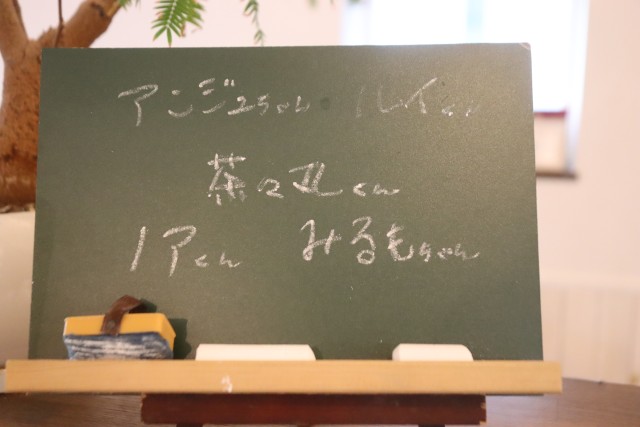 アンジュちゃん ルイくん
茶々丸くん
ノアくん みるもちゃん